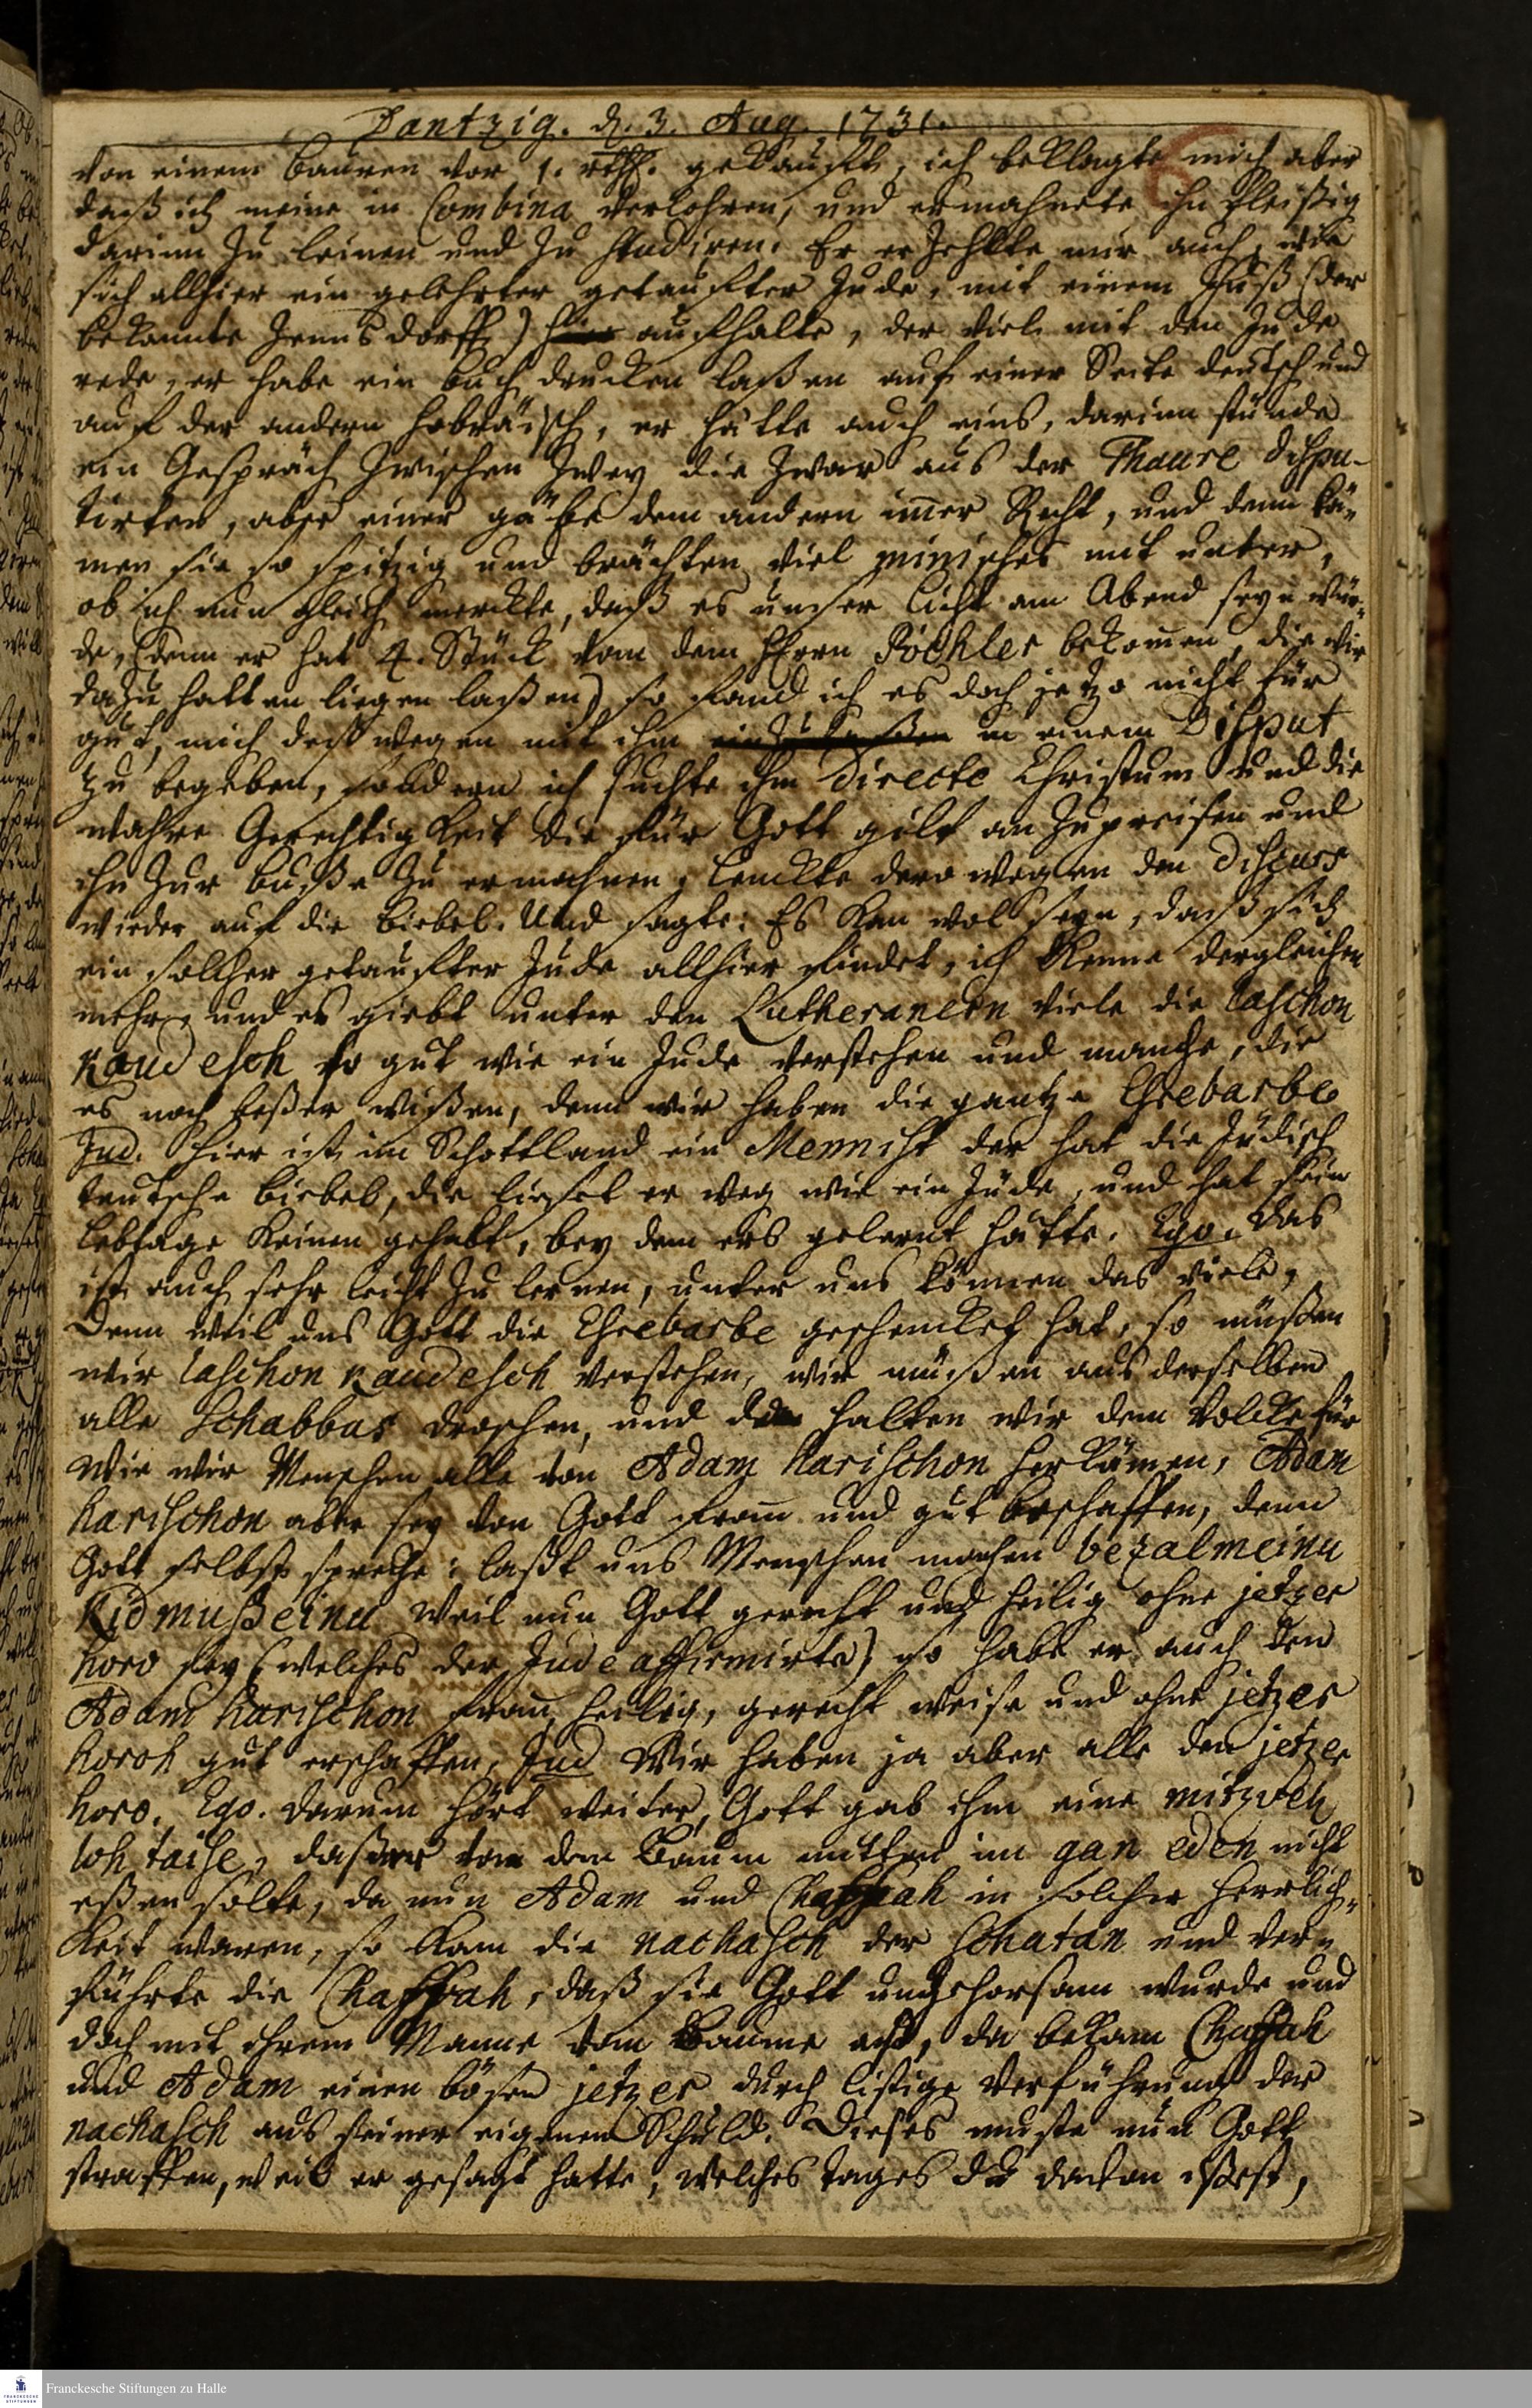 Dantzig. d. 3. Aug. 1731.
6
von einem bauren vor 1. rthl. gekaufft, ich beklagte mich aber
daß ich meine in Combina verlohren, und ermahnete ihn fleißig
darinn zu leinen und zu studiren. Er erzehlte mir auch, wie
sich allhier ein gelehrter getauffter Jude, mit einem Fuß (der
bekannte dorff) auffhalte, der viel mit den Jude
rede, er habe ein buch drucken laßen auf einer Seite deutsch und
auf der andern hebräisch, er hätte auch eins, darinn stünde
ein Gespräch zwischen zwey die zwar aus der Thaure dispu-
tirten, aber einer gäbe dem andern imer Recht, und denn kä-
men sie so spitzig und brächten viel minisches mit unter,
ob ich nun gleich merckte, daß es unser licht am Abend seyn wür-
de, (denn er hat 4. Stück von dem Herrn Röchler bekomen, die wir
dazu hatten liegen laßen) so fand ich es doch jetzo nicht für
gut, mich deßwegen mit ihm einzulaßen in einem Disput
zu begeben, sondern ich suchte ihm directe Christum und die
wahre Gerechtigkeit die für Gott gilt anzupreisen und
ihn zur buße zu ermahnen, lenckte dero wegen den discurs
wieder auf die biebel. Und sagte: Es kan wol seyn, daß sich
ein solcher getauffter Jude allhier findet, ich kenne dergleichen
mehr, und es giebt unter den Lutheranern viele die laschon
kaudesch so gut wie ein Jude verstehen und manche, die
es noch beßer wißen, denn wir haben die gantze Esrebarbe
Jud. hier ist im Schottland ein Mennist der hat die Jüdisch
teutsche biebel, die lieset er weg wie ein Jude, und hat sein
lebtage keinen gehabt, bey dem ers gelernt hätte. Ego. das
ist auch sehr leicht zu lernen, unter uns können das viele,
Denn weil uns Gott die Esrebarbe geschencket hat, so müßen
wir laschon kaudesch verstehen, wir müßen aus derselben
alle Schabbas droschen, und da halten wir dem Volcke für
wie wir Menschen alle von Adam harischon herkämen, Adam
harischon aber sey von Gott from und gut erschaffen, denn
Gott selbst spreche: laßt uns Menschen machen bezalmeinu
Kidmußeinu weil nun Gott gerecht und heilig ohne jetzer
horo sey (welches der Jude affirmirte) so habe er auch den
Adam harischon from, heilig, gerecht weise und ohne jetzer
horoh gut erschaffen, Jud Wir haben ja aber alle den jetzer
horo. Ego. darum hört weiter, Gott gab ihm eine mitzveh
loh taise, daß er von dem Baum mitten im gan eden nicht
eßen solte, da nun Adam und Chaffah in solcher Herrlich-
keit waren, so kam die nachasch der schatan und ver-
führte die Chaffah, daß sie Gott ungehorsam wurde und
doch mit ihrem Manne vom Baume aß, da bekam Chaffah
und Adam einen bösen jetzer durch listige Verführung der
nachasch aus seiner eigenen Schuld. Dieses muste nun Gott
straffen, weil er gesagt hatte, welches tages du davon ißest,
Franckesche Stiftungen zu Halle